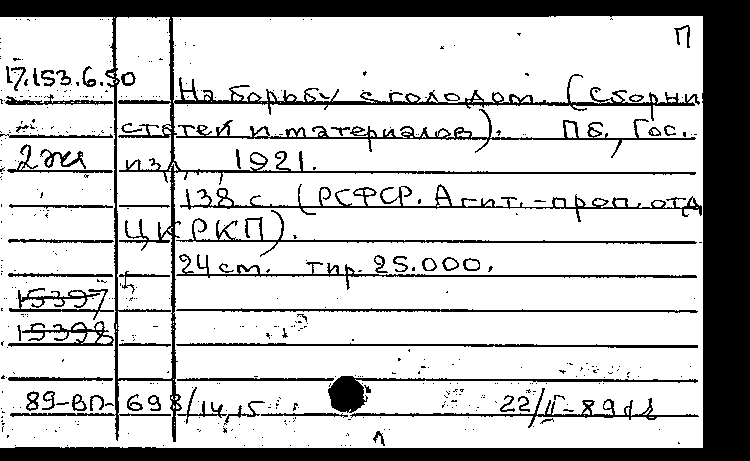 П
17.153.6.50
На борьбу с голодом. (Сборни
статей и материалов). Пб., Гос.
2 экз изд., 1921.
138 с. (РСФСР. Агит.-проп. отд
ЦК РКП).
24 cm. тир. 25.000.
15397
15398
89-ВП-698/14,15 22/II-89